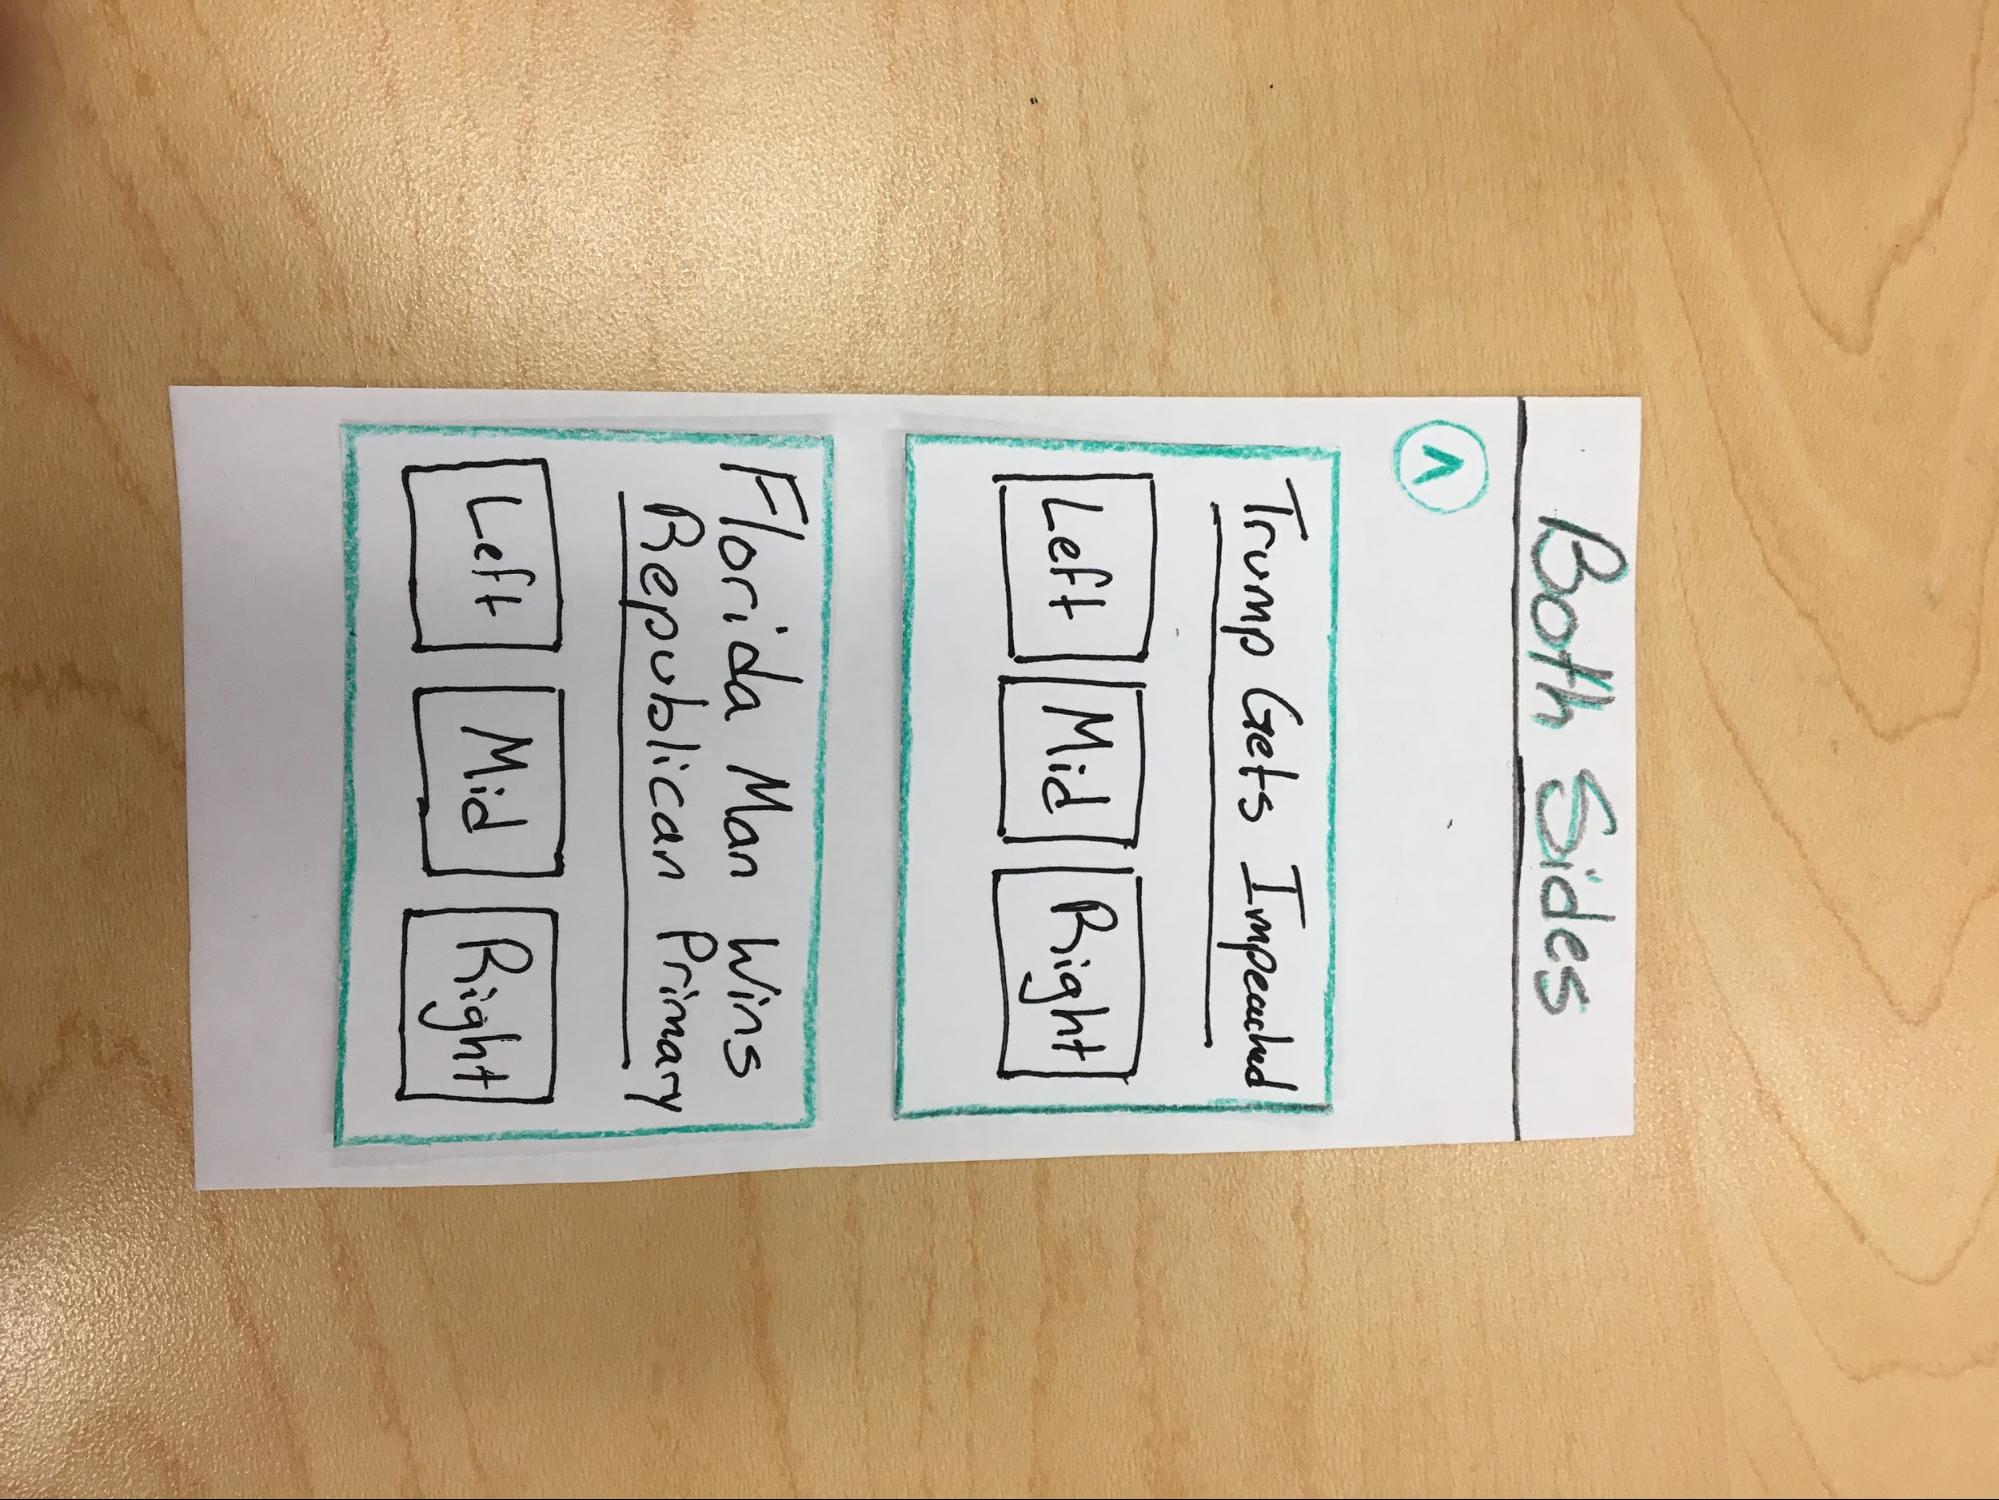 Both Sides
^
Trump Gets Impeached
Left Mid Right
Florida Man Wins
Republican Primary
Left Mid Right